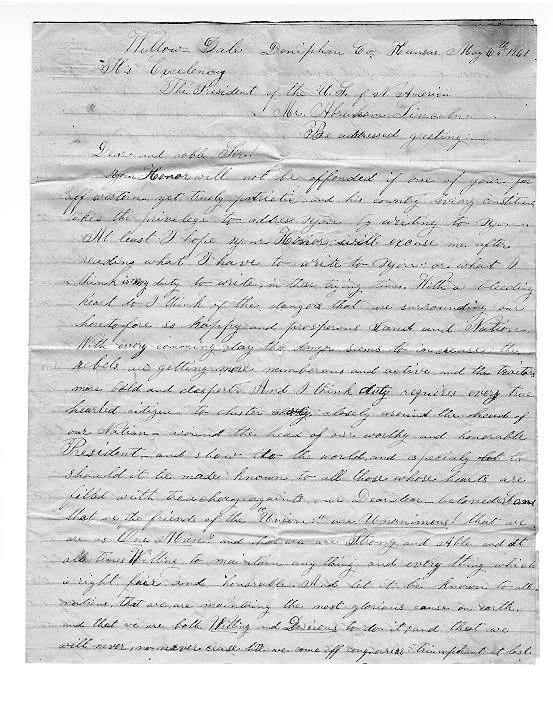 Willow Dale Doniphan Co, Kansas, May 6th 1861
His Excelency
The President of the U.S. of N. America
Mr. Abraham Lincoln.
Be addressed greeting.
Dear and noble Sir!
Your Honor will not be offended if one of your far
off western yet truely patriotic and his country loving constituent
takes the privelege to address you by writing to you.
At least I hope your Honor will excuse me after
reading what I have to write to you: or, what I
think is my duty to write, in these trying times. With a bleeding
heart do I think of the dangers that are surrounding our
heretofore so happy and prosperous Land and Nation.
With every comeing day the danger seems to increase. the
rebels are getting more numberous and active and the traitors
more bold and desperet. And I think duty requires every true
hearted citizen to cluster closely around the head of
our Nation around the head of our worthy and honorable
President and show to the world, and especialy to
should it be made known to all those whose hearts are
filled with treachery against our Dear dear beloved Land
that we the friends of the "Union" are Unanimous! that we
are as "One Man" and that we are Strong and Able and at
all times Willing to maintain any thing and every thing which
is right fair and honorable. And let it be known to all
nations, that we are maintaing the most glorious cause on earth.
and that we are both Willing and Desirous to do it; and that we
will never, no never cease till we come off conquerors & triumphant at last.